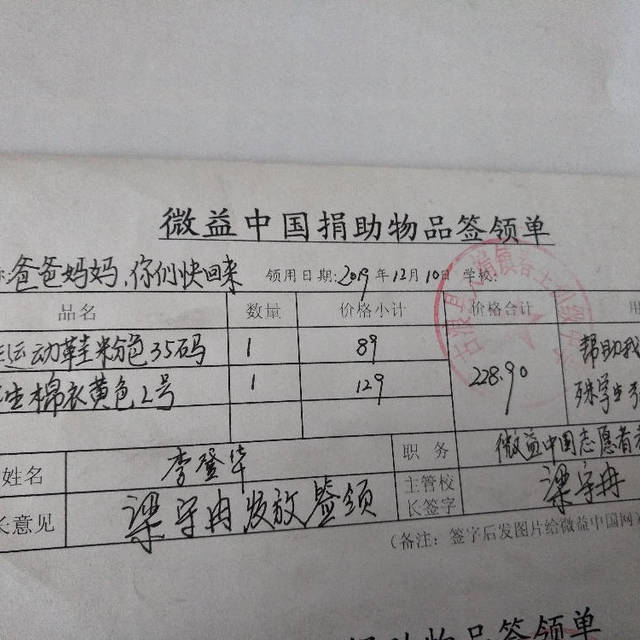 微益中国捐助物品签领单
爸爸妈妈,你们快回来 领用日期:2019年12月10日 学校:
品名 数量 价格小计 价格合计 用
运动鞋粉色35码 1 89 228.90 帮助我
生棉衣黄色2号 1 129 殊学生
姓名 李登华 职务 微益中国志愿者
长意见 梁守冉发放签领 主管校长签字 梁守冉
(备注:签字后发图片给微益中国网
捐助物品签领单